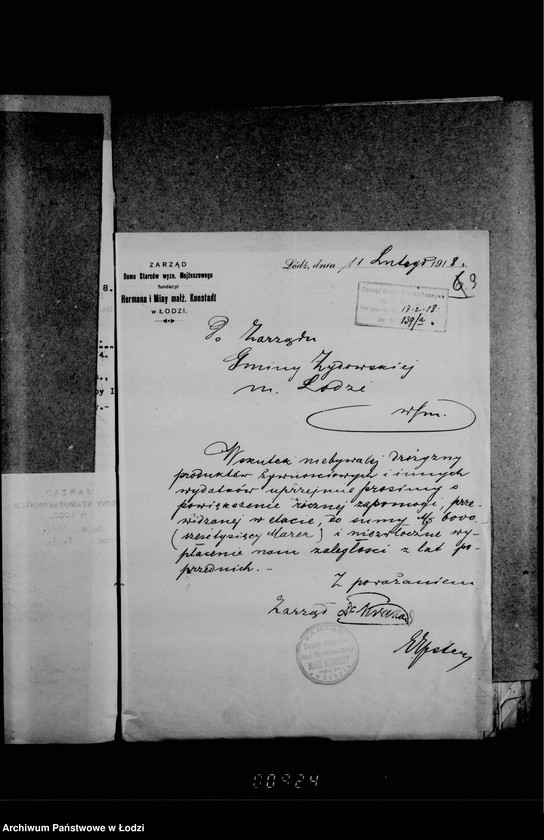 ZARZĄD
Domu Starców wyzn. Mojżeszowego
fundacyi
Hermana i Miny małż. Konstadt
w ŁODZI.
Łódź, dnia 11 Lutego 1918.
17-2-18.
139/a.
Do Zarządu
Gminy Żydowskiej
m. Łodzi
w/m.
Wskutek niebywałej drożyzny
produktów żywnościowych i innych
wydatków uprzejmie prosimy o
powiększenie rocznej zapomogi, prze-
widzanej w etacie, do sumy Mk 6000
(sześćtysięcy Marek) i niezwłoczne wy-
płacenie nam zaległości z lat po-
przednich. –
Z poważaniem
Zarząd
00924
Archiwum Państwowe w Łodzi